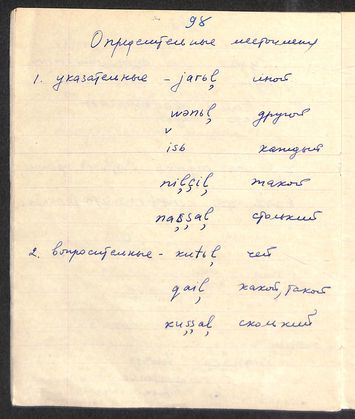 98
Определительные местоимен
1. указательные – jarьļ иной
wənьļ другой
isь каждый
niļçiļ такой
naşşaļ столький
2. вопросительные – kutьļ чей
qaiļ какой, такой
kuşşaļ сколький